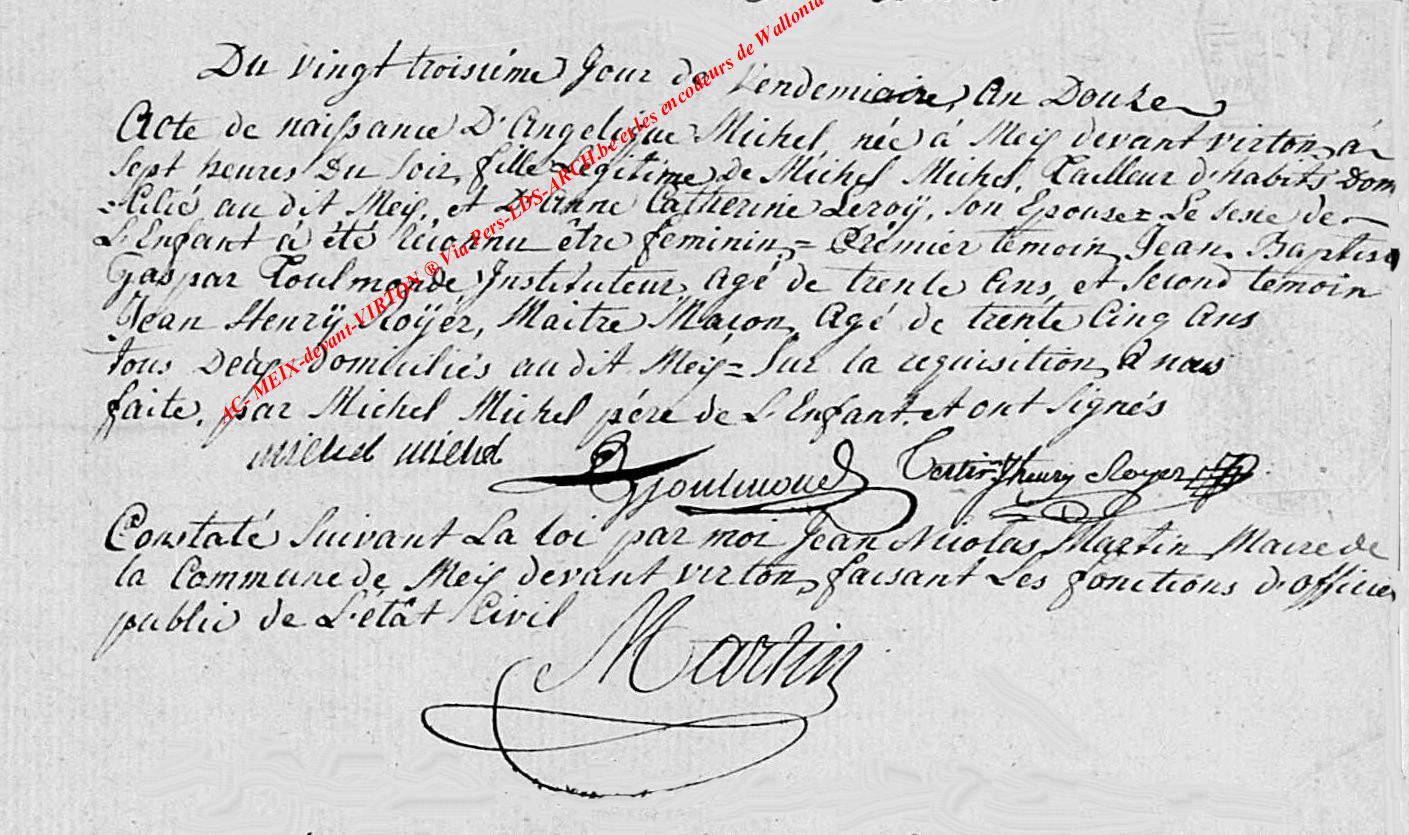 Du vingt troisiéme Jour de Vendemiaire, an Douze
Acte de naissance D'Angelique Michel, née à Meix devant virton, à
Sept heures Du Soir, fille Légitime de Michel Michel, Tailleur d'habits Dom
=icilié au dit Meix, et D'Anne Catherine Leroÿ, Son Epouse = Le Sexe de
L'Enfant à été reconnu être feminin, = Prémier temoin, Jean Baptis
Gaspar Toulmonde, Instituteur, agé de trente ans, et Second temoin
Jean Henrÿ Roÿer, Maitre Maçon, agé de trente Cinq ans
tous Deux domiciliés au dit Meix = Sur la requisition à nous
faite, par Michel Michel pére de L'Enfant, et ont Signés
michel michel
Jhenry Royer
Constaté Suivant La loi par moi Jean Nicolas Martin Maire de
la Commune de Meix devant virton, faisant Les fonctions d'officier
public de L'étât Civil
Martin
AC- MEIX-devant-VIRTON ® Via Pers-LDS-ARCH.be et les encodeurs de Wallonia